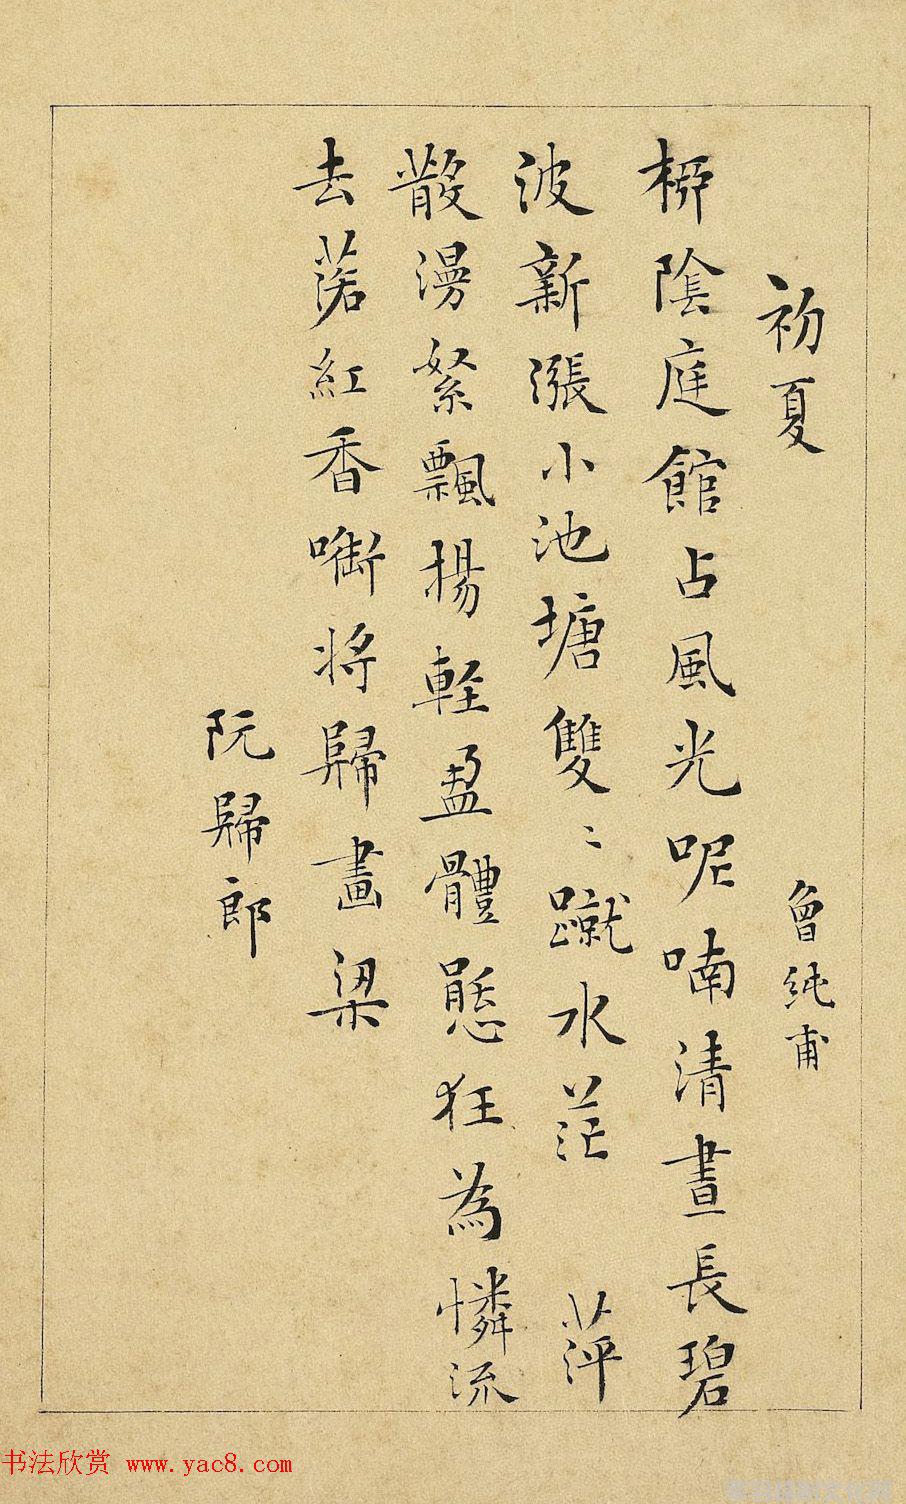 初夏 曾純甫
柳陰庭館占風光呢喃清晝長碧
波新漲小池塘雙〻蹴水茫 萍
散漫絮飄揚輕盈體態狂為憐流
去落紅香啣將歸畫梁
阮歸郎
书法欣赏 www.yac8.com